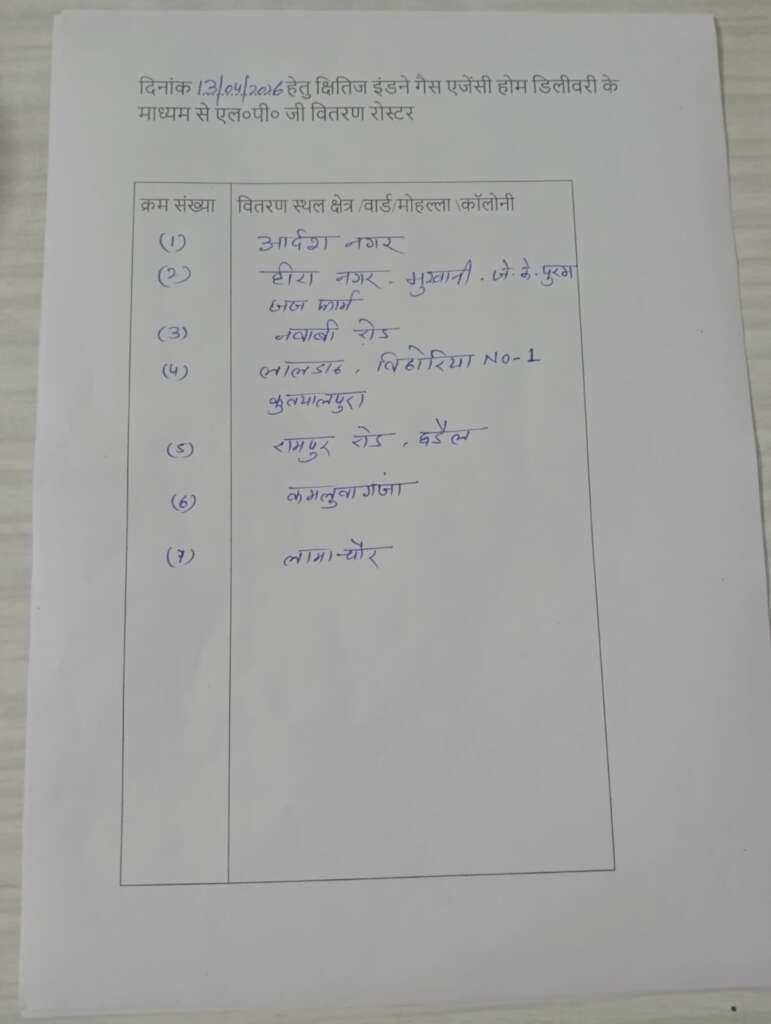 दिनांक 13/04/2026 हेतु क्षितिज इंडने गैस एजेंसी होम डिलीवरी के
माध्यम से एल०पी० जी वितरण रोस्टर
क्रम संख्या वितरण स्थल क्षेत्र /वार्ड/मोहल्ला \कॉलोनी
(1) आर्दश नगर
(2) हीरा नगर - मुखानी - जे. के. पुरम
जज फार्म
(3) नवाबी रोड
(4) लालडाट, बिठोरिया No-1
कुतयालपुरा
(5) रामपुर रोड, छडैल
(6) कमलुवागंजा
(7) लामाचौर